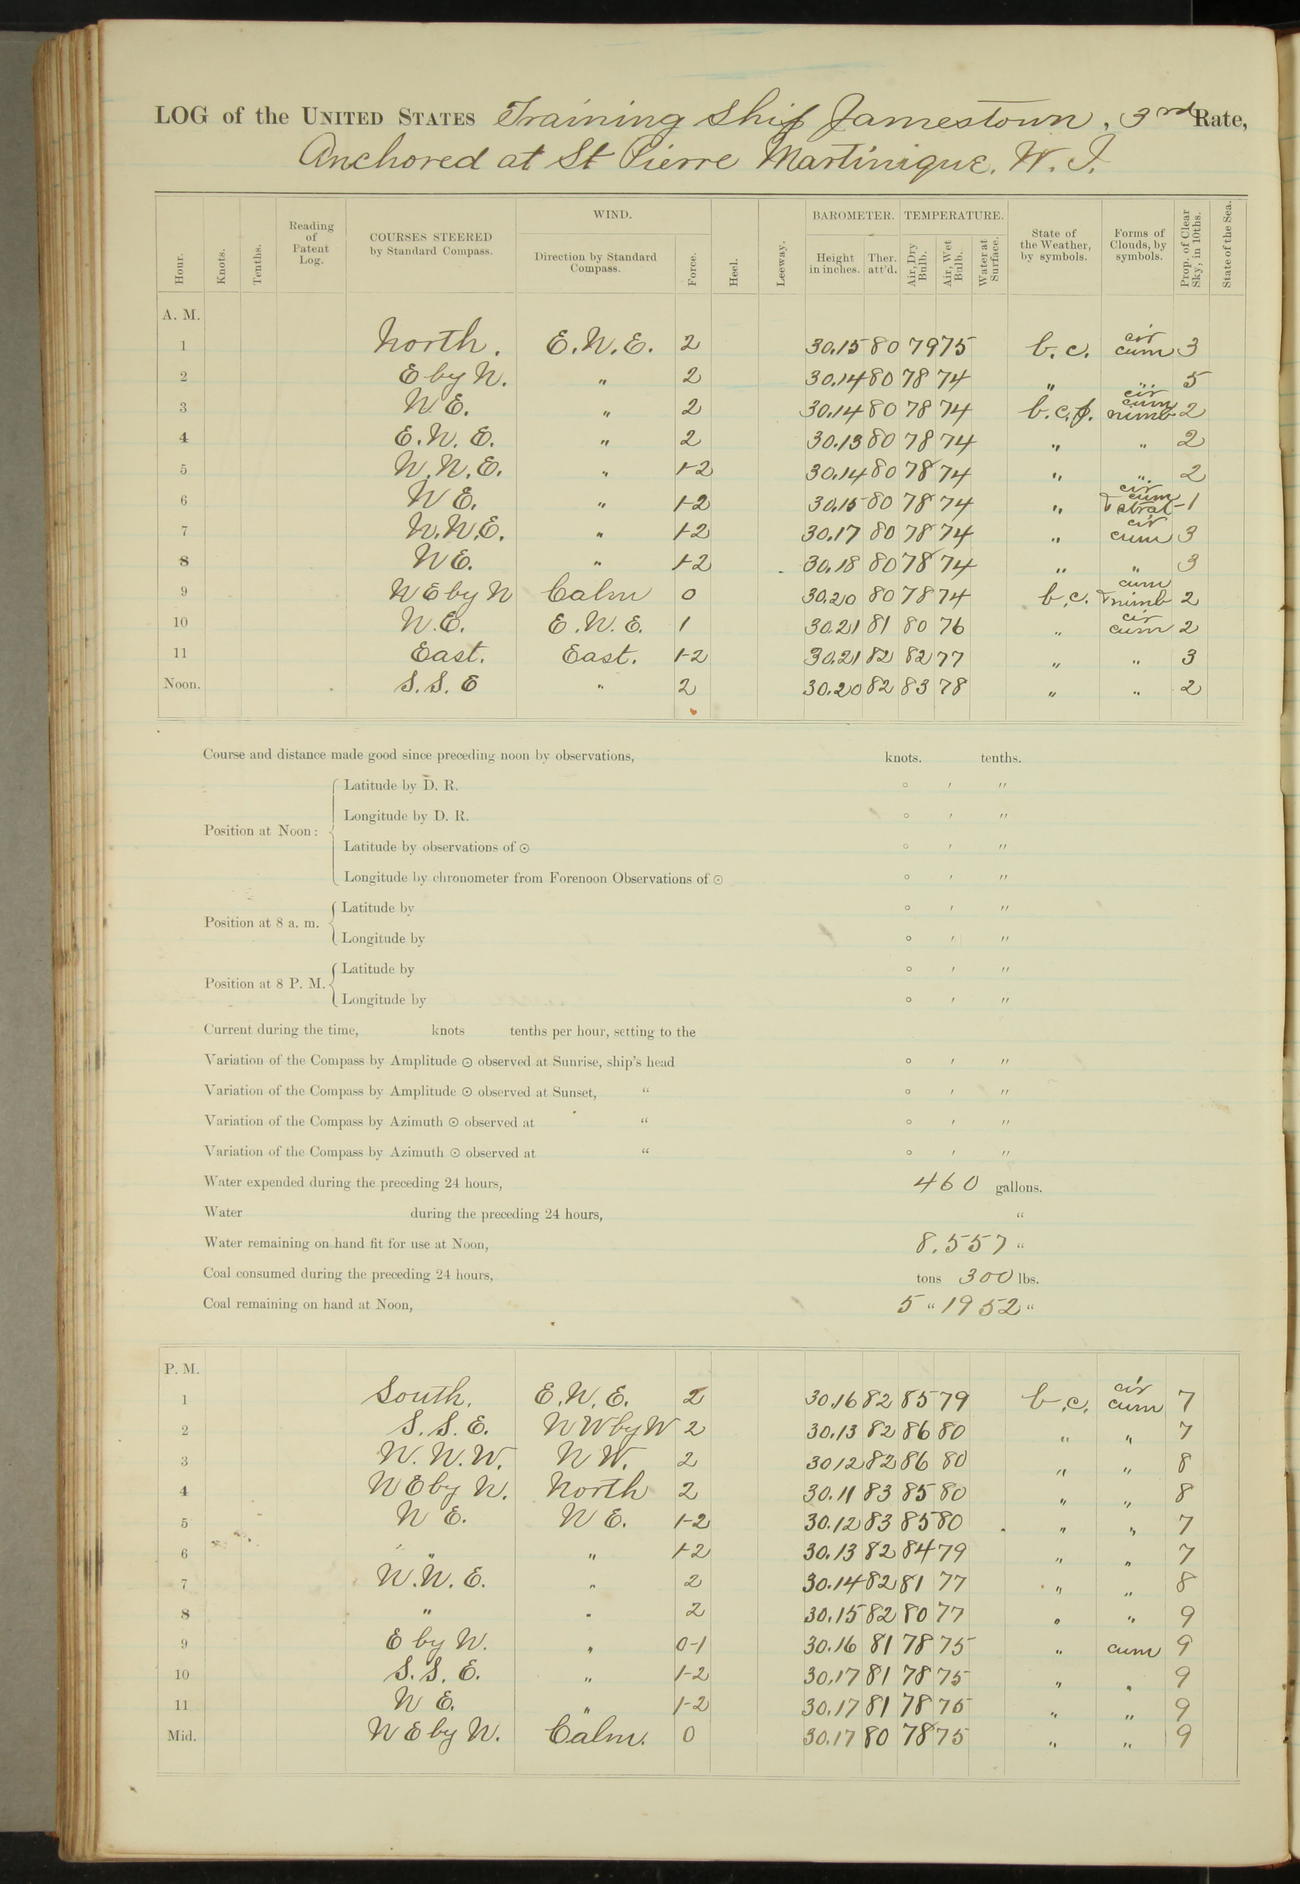 LOG of the UNITED STATES Training Ship Jamestown, 3rd Rate,
Anchored at St Pierre Martinique. W. I.
Hour. Knots. Tenths. Reading of Patent Log. COURSES STEERED by Standard Compass. WIND. Direction by Standard Compass. Force. Heel. Leeway. BAROMETER. Height in inches. Ther. att'd. TEMPERATURE. Air, Dry Bulb. Air, Wet Bulb. Water at Surface. State of the Weather, by symbols. Forms of Clouds, by symbols. Prop. of Clear Sky, in 10ths. State of the Sea.
A. M.
1 North. E.N.E. 2 30.15 80 79 75 b.c. cir cum 3
2 E by N. " 2 30.14 80 78 74 " " 5
3 N E. " 2 30.14 80 78 74 b.c.p. cir cum nimb 2
4 E.N.E. " 2 30.13 80 78 74 " " 2
5 N.N.E. " 1-2 30.14 80 78 74 " " 2
6 N E. " 1-2 30.15 80 78 74 " cir cum & strat 1
7 N.N.E. " 1-2 30.17 80 78 74 " cir cum 3
8 N E. " 1-2 30.18 80 78 74 " " 3
9 N E by N Calm 0 30.20 80 78 74 b.c. cum & nimb 2
10 N.E. E.N.E. 1 30.21 81 80 76 " cir cum 2
11 East. East. 1-2 30.21 82 82 77 " " 3
Noon. S.S.E " 2 30.20 82 83 78 " " 2
Course and distance made good since preceding noon by observations, knots. tenths.
Position at Noon: Latitude by D. R. ° ′ ″
Longitude by D. R. ° ′ ″
Latitude by observations of ☉ ° ′ ″
Longitude by chronometer from Forenoon Observations of ☉ ° ′ ″
Position at 8 a. m. Latitude by ° ′ ″
Longitude by ° ′ ″
Position at 8 P. M. Latitude by ° ′ ″
Longitude by ° ′ ″
Current during the time, knots tenths per hour, setting to the
Variation of the Compass by Amplitude ☉ observed at Sunrise, ship's head ° ′ ″
Variation of the Compass by Amplitude ☉ observed at Sunset, " ° ′ ″
Variation of the Compass by Azimuth ☉ observed at " ° ′ ″
Variation of the Compass by Azimuth ☉ observed at " ° ′ ″
Water expended during the preceding 24 hours, 460 gallons.
Water during the preceding 24 hours, "
Water remaining on hand fit for use at Noon, 8.557 "
Coal consumed during the preceding 24 hours, tons 300 lbs.
Coal remaining on hand at Noon, 5 " 1952 "
P. M.
1 South. E.N.E. 2 30.16 82 85 79 b.c. cir cum 7
2 S.S.E. NW by W 2 30.13 82 86 80 " " 7
3 N.N.W. N W. 2 30 12 82 86 80 " " 8
4 N E by N. North 2 30.11 83 85 80 " " 8
5 N E. N E. 1-2 30.12 83 85 80 " " 7
6 " " 1-2 30.13 82 84 79 " " 7
7 N.N.E. " 2 30.14 82 81 77 " " 8
8 " " 2 30.15 82 80 77 " " 9
9 E by N. " 0-1 30.16 81 78 75 " cum 9
10 S.S.E. " 1-2 30.17 81 78 75 " " 9
11 N E. " 1-2 30.17 81 78 75 " " 9
Mid. N E by N. Calm. 0 30.17 80 78 75 " " 9